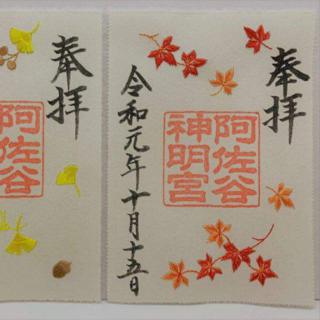 奉拝
阿佐谷
神明宮
令和元年十月十五日
奉拝
阿佐谷